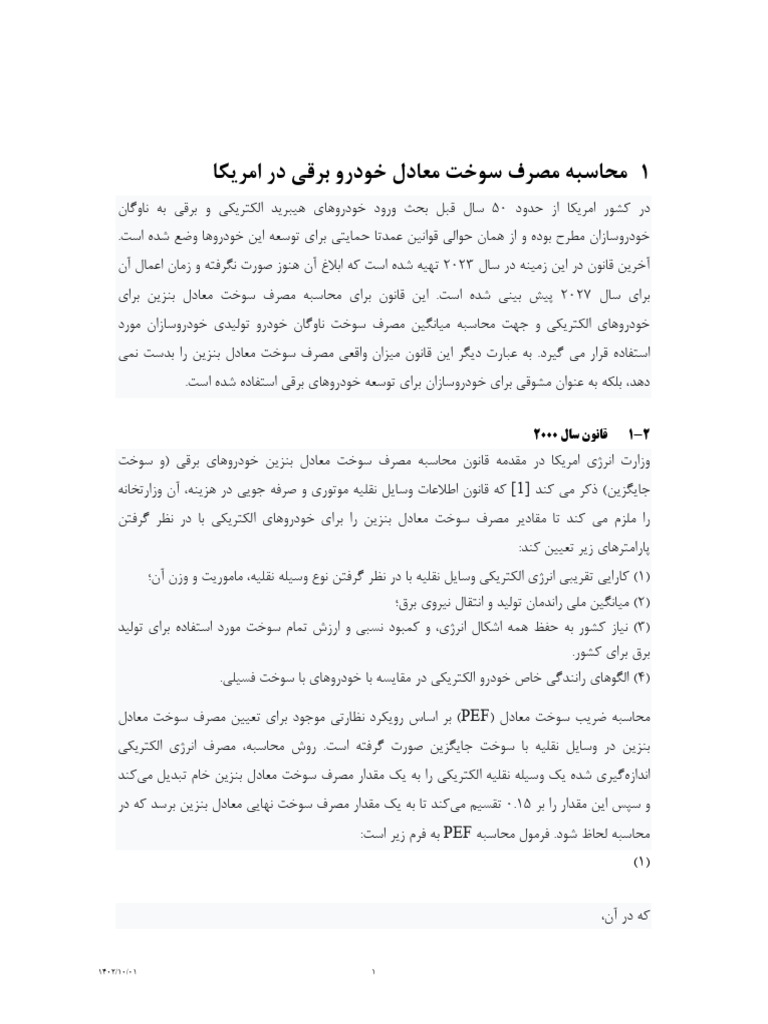 ۱ محاسبه مصرف سوخت معادل خودرو برقی در امریکا
در کشور امریکا از حدود ۵۰ سال قبل بحث ورود خودروهای هیبرید الکتریکی و برقی به ناوگان
خودروسازان مطرح بوده و از همان حوالی قوانین عمدتا حمایتی برای توسعه این خودروها وضع شده است.
آخرین قانون در این زمینه در سال ۲۰۲۳ تهیه شده است که ابلاغ آن هنوز صورت نگرفته و زمان اعمال آن
برای سال ۲۰۲۷ پیش بینی شده است. این قانون برای محاسبه مصرف سوخت معادل بنزین برای
خودروهای الکتریکی و جهت محاسبه میانگین مصرف سوخت ناوگان خودرو تولیدی خودروسازان مورد
استفاده قرار می گیرد. به عبارت دیگر این قانون میزان واقعی مصرف سوخت معادل بنزین را بدست نمی
دهد، بلکه به عنوان مشوقی برای خودروسازان برای توسعه خودروهای برقی استفاده شده است.
۱-۲ قانون سال ۲۰۰۰
وزارت انرژی امریکا در مقدمه قانون محاسبه مصرف سوخت معادل بنزین خودروهای برقی (و سوخت
جایگزین) ذکر می کند [1] که قانون اطلاعات وسایل نقلیه موتوری و صرفه جویی در هزینه، آن وزارتخانه
را ملزم می کند تا مقادیر مصرف سوخت معادل بنزین را برای خودروهای الکتریکی با در نظر گرفتن
پارامترهای زیر تعیین کند:
(۱) کارایی تقریبی انرژی الکتریکی وسایل نقلیه با در نظر گرفتن نوع وسیله نقلیه، ماموریت و وزن آن؛
(۲) میانگین ملی راندمان تولید و انتقال نیروی برق؛
(۳) نیاز کشور به حفظ همه اشکال انرژی، و کمبود نسبی و ارزش تمام سوخت مورد استفاده برای تولید
برق برای کشور.
(۴) الگوهای رانندگی خاص خودرو الکتریکی در مقایسه با خودروهای با سوخت فسیلی.
محاسبه ضریب سوخت معادل (PEF) بر اساس رویکرد نظارتی موجود برای تعیین مصرف سوخت معادل
بنزین در وسایل نقلیه با سوخت جایگزین صورت گرفته است. روش محاسبه، مصرف انرژی الکتریکی
اندازه‌گیری شده یک وسیله نقلیه الکتریکی را به یک مقدار مصرف سوخت معادل بنزین خام تبدیل می‌کند
و سپس این مقدار را بر ۰.۱۵ تقسیم می‌کند تا به یک مقدار مصرف سوخت نهایی معادل بنزین برسد که در
محاسبه لحاظ شود. فرمول محاسبه PEF به فرم زیر است:
(۱)
که در آن،
۱
۱۴۰۲/۱۰/۰۱